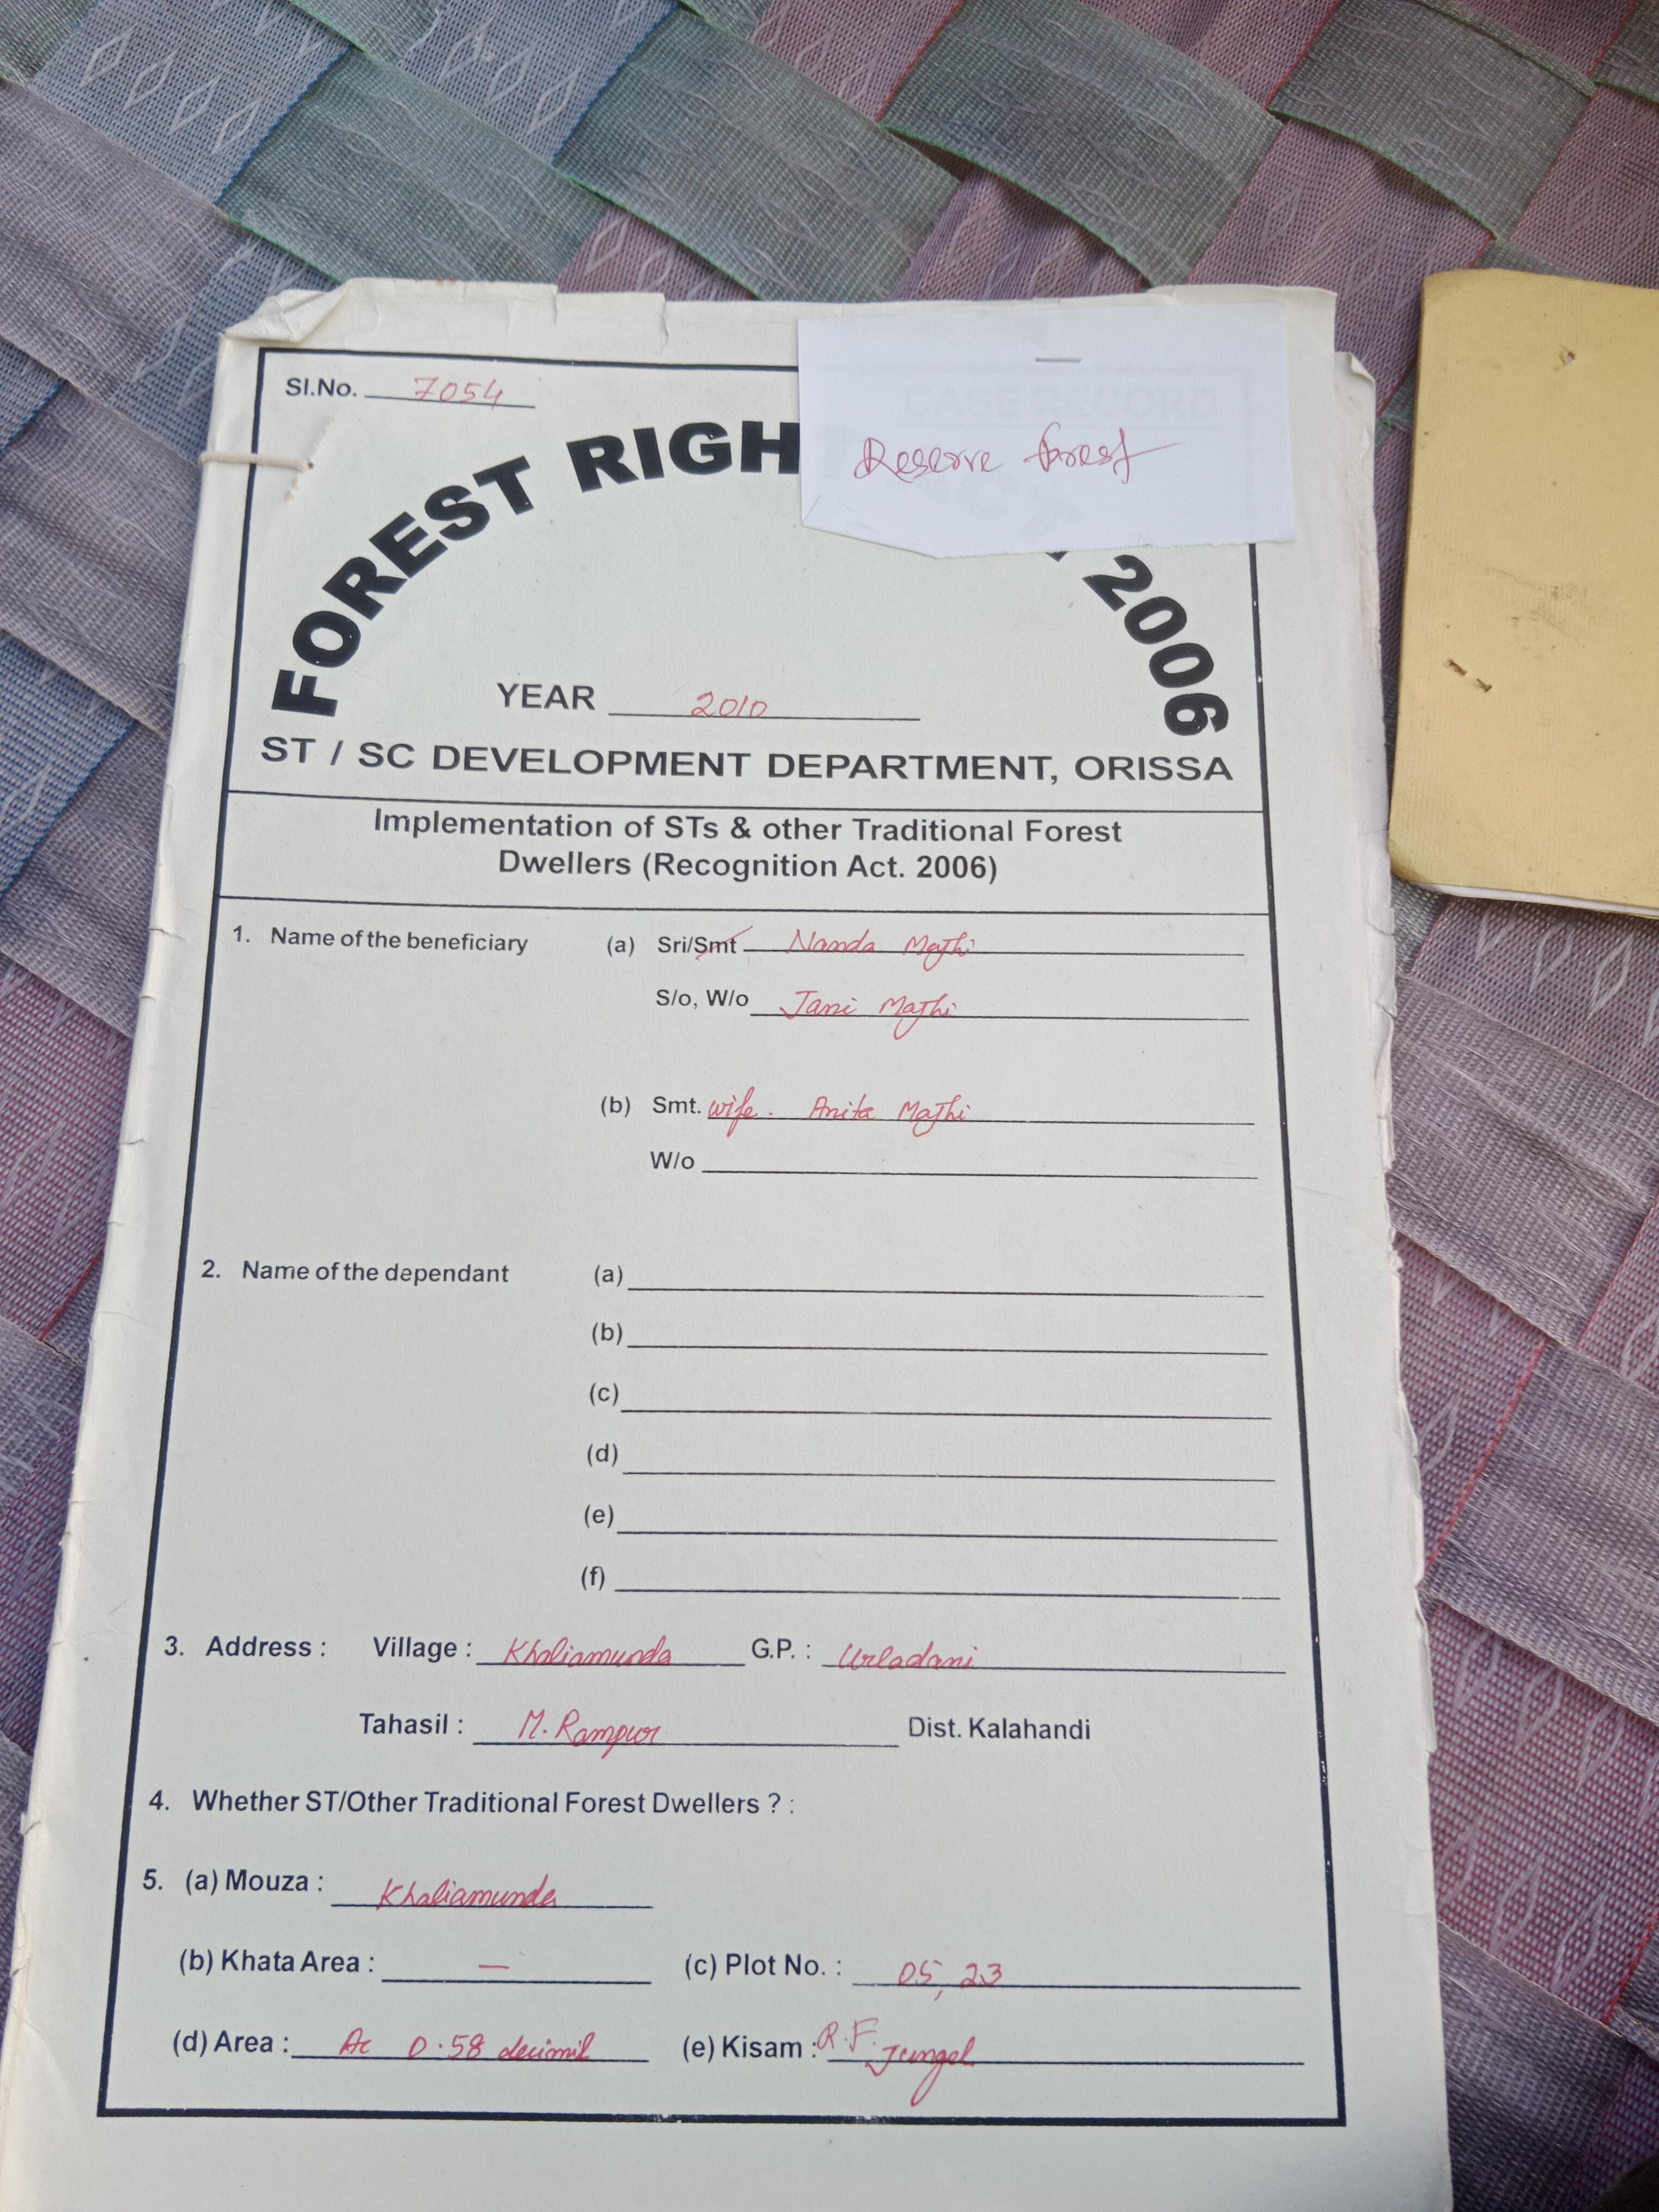 Sl.No. 7054
CASE RECORD
Reserve forest
FOREST RIGH 2006
YEAR 2010
ST / SC DEVELOPMENT DEPARTMENT, ORISSA
Implementation of STs & other Traditional Forest
Dwellers (Recognition Act. 2006)
1. Name of the beneficiary (a) Sri/Smt Nanda Majhi
S/o, W/o Jani Majhi
(b) Smt. wife. Anita Majhi
W/o
2. Name of the dependant (a)
(b)
(c)
(d)
(e)
(f)
3. Address : Village : Khaliamunda G.P. : Urladani
Tahasil : M. Rampur Dist. Kalahandi
4. Whether ST/Other Traditional Forest Dwellers ? :
5. (a) Mouza : Khaliamunda
(b) Khata Area : — (c) Plot No. : 05, 23
(d) Area : Ac 0.58 decimil (e) Kisam : R.F. Jungel